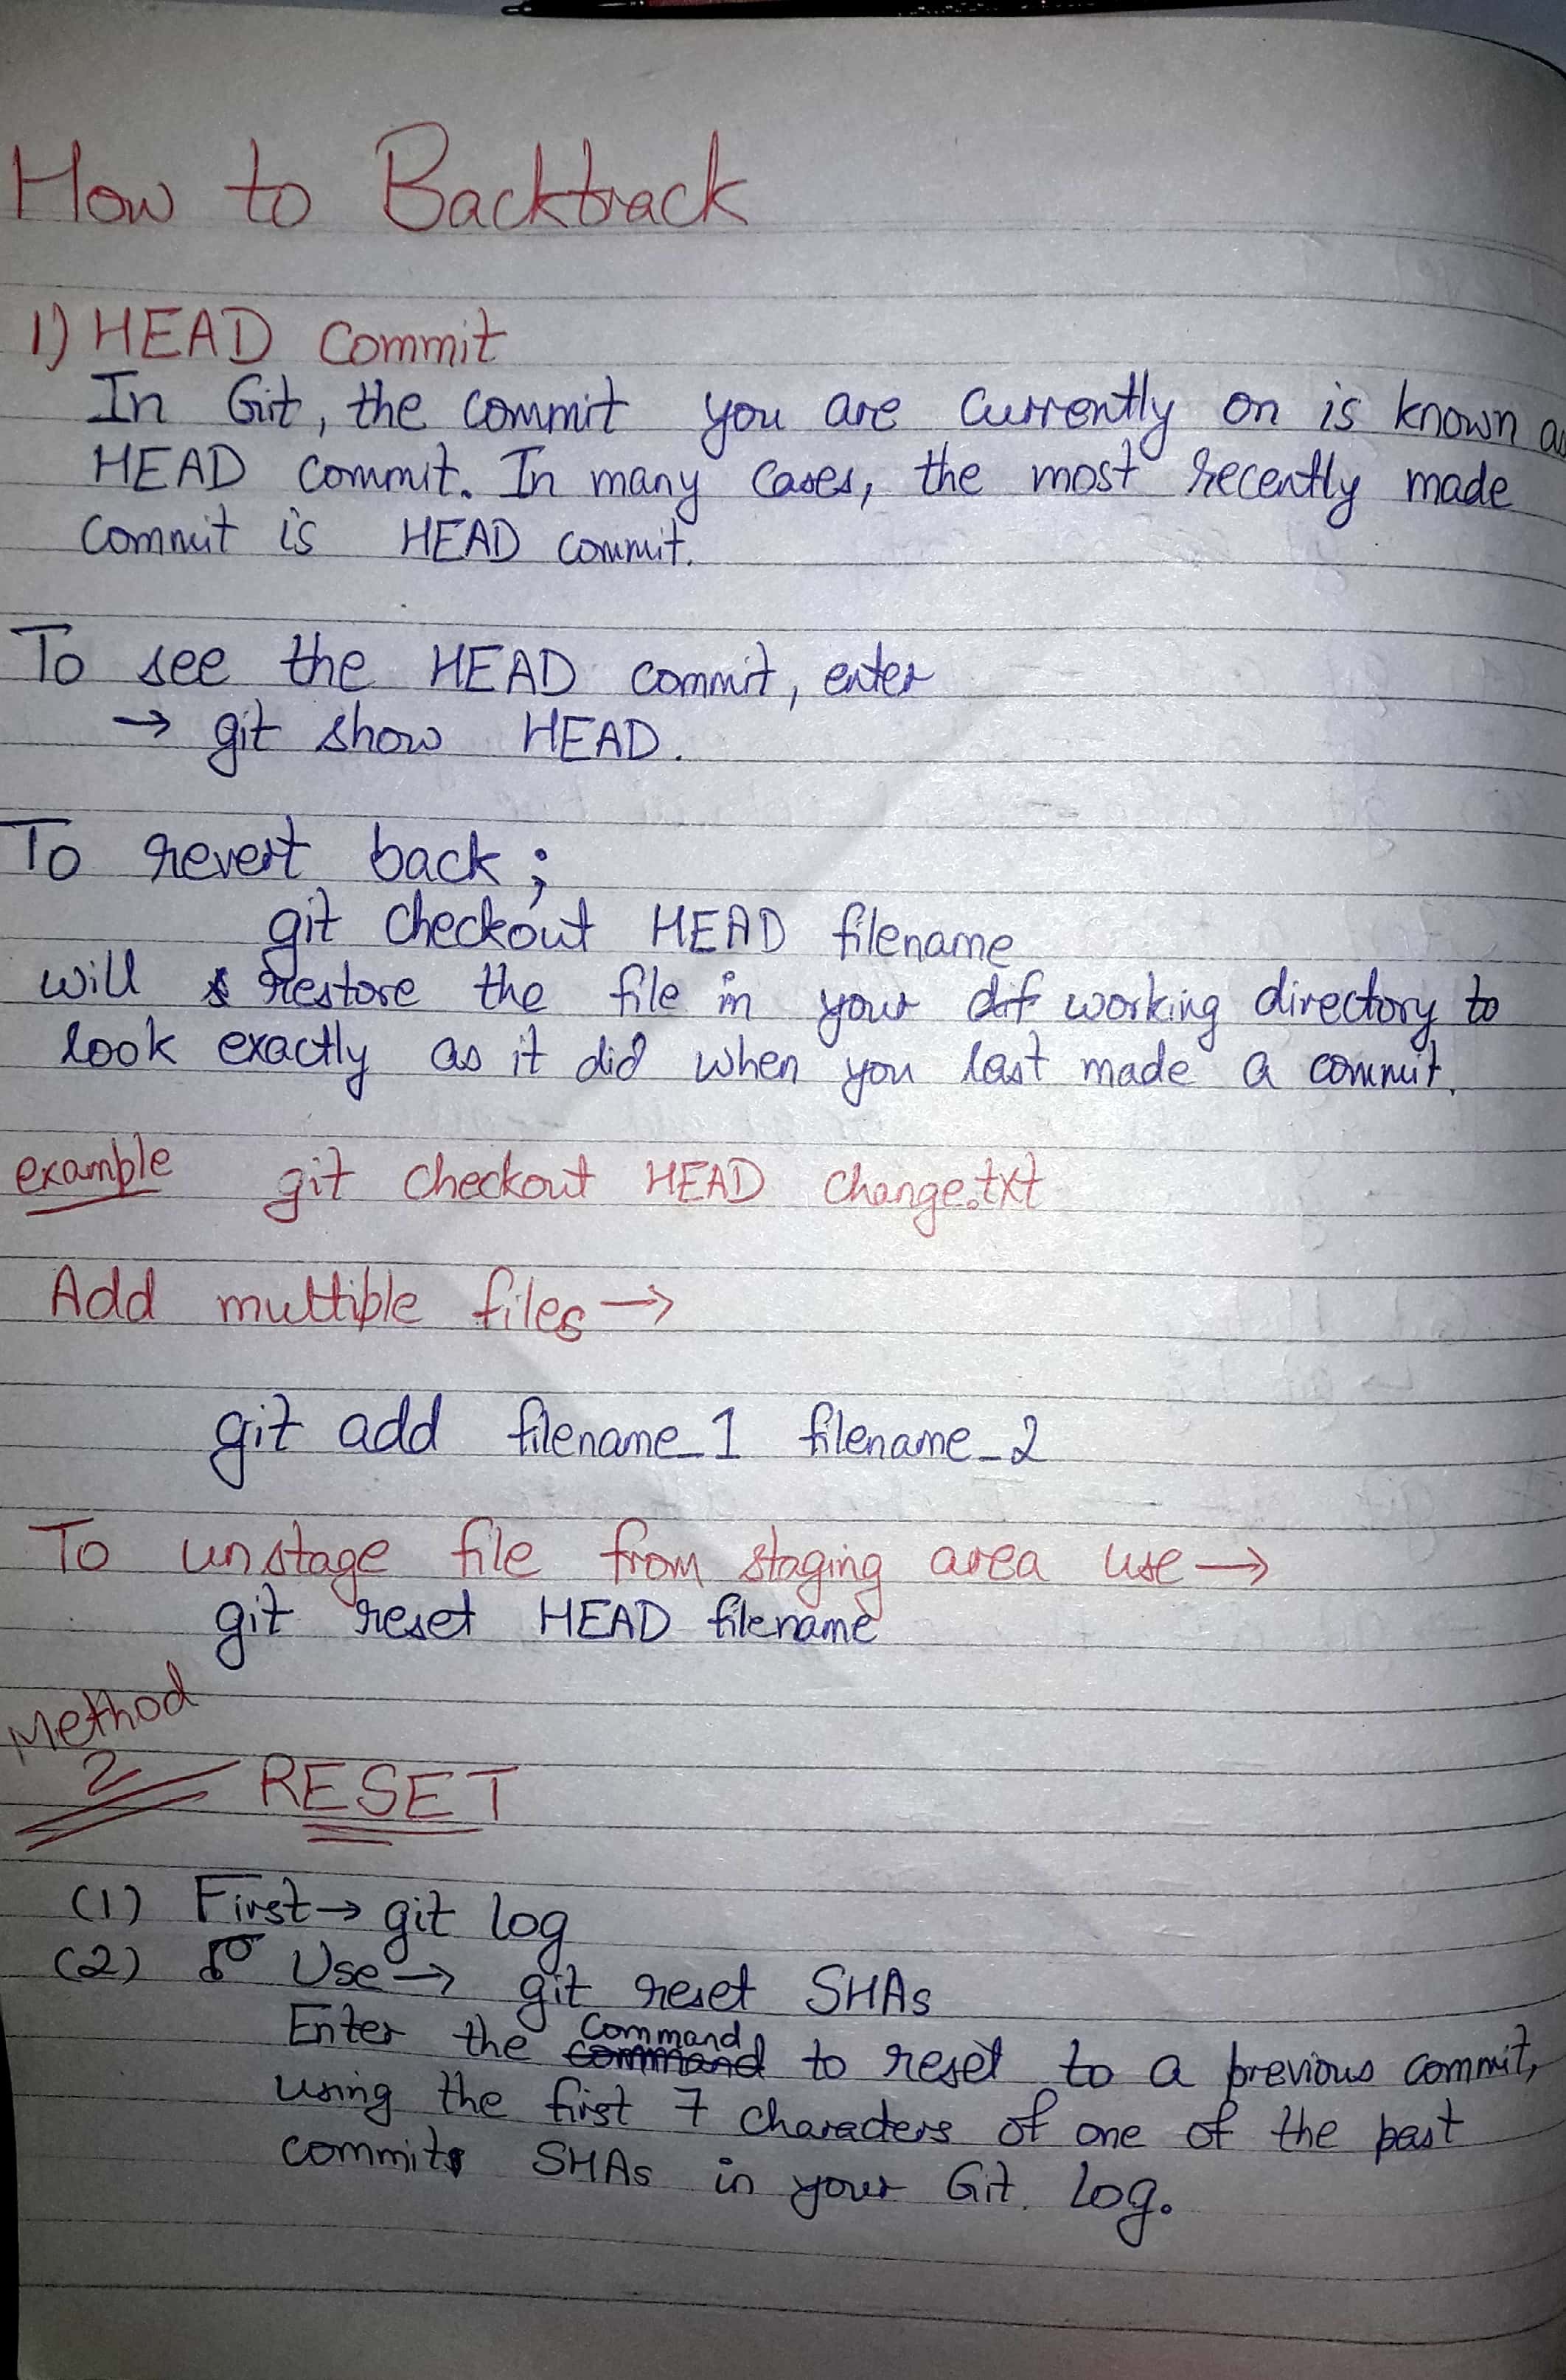 How to Backtrack
1) HEAD Commit
In Git, the commit you are currently on is known as
HEAD commit. In many cases, the most recently made
commit is HEAD commit.
To see the HEAD commit, enter
→ git show HEAD.
To revert back ;
git checkout HEAD filename
will restore the file in your working directory to
look exactly as it did when you last made a commit.
example git checkout HEAD change.txt
Add multiple files →
git add filename_1 filename_2
To unstage file from staging area use →
git reset HEAD filename
Method
2 RESET
(1) First → git log
(2) Use → git reset SHAs
Enter the command to reset to a previous commit,
using the first 7 characters of one of the past
commits SHAs in your Git. Log.